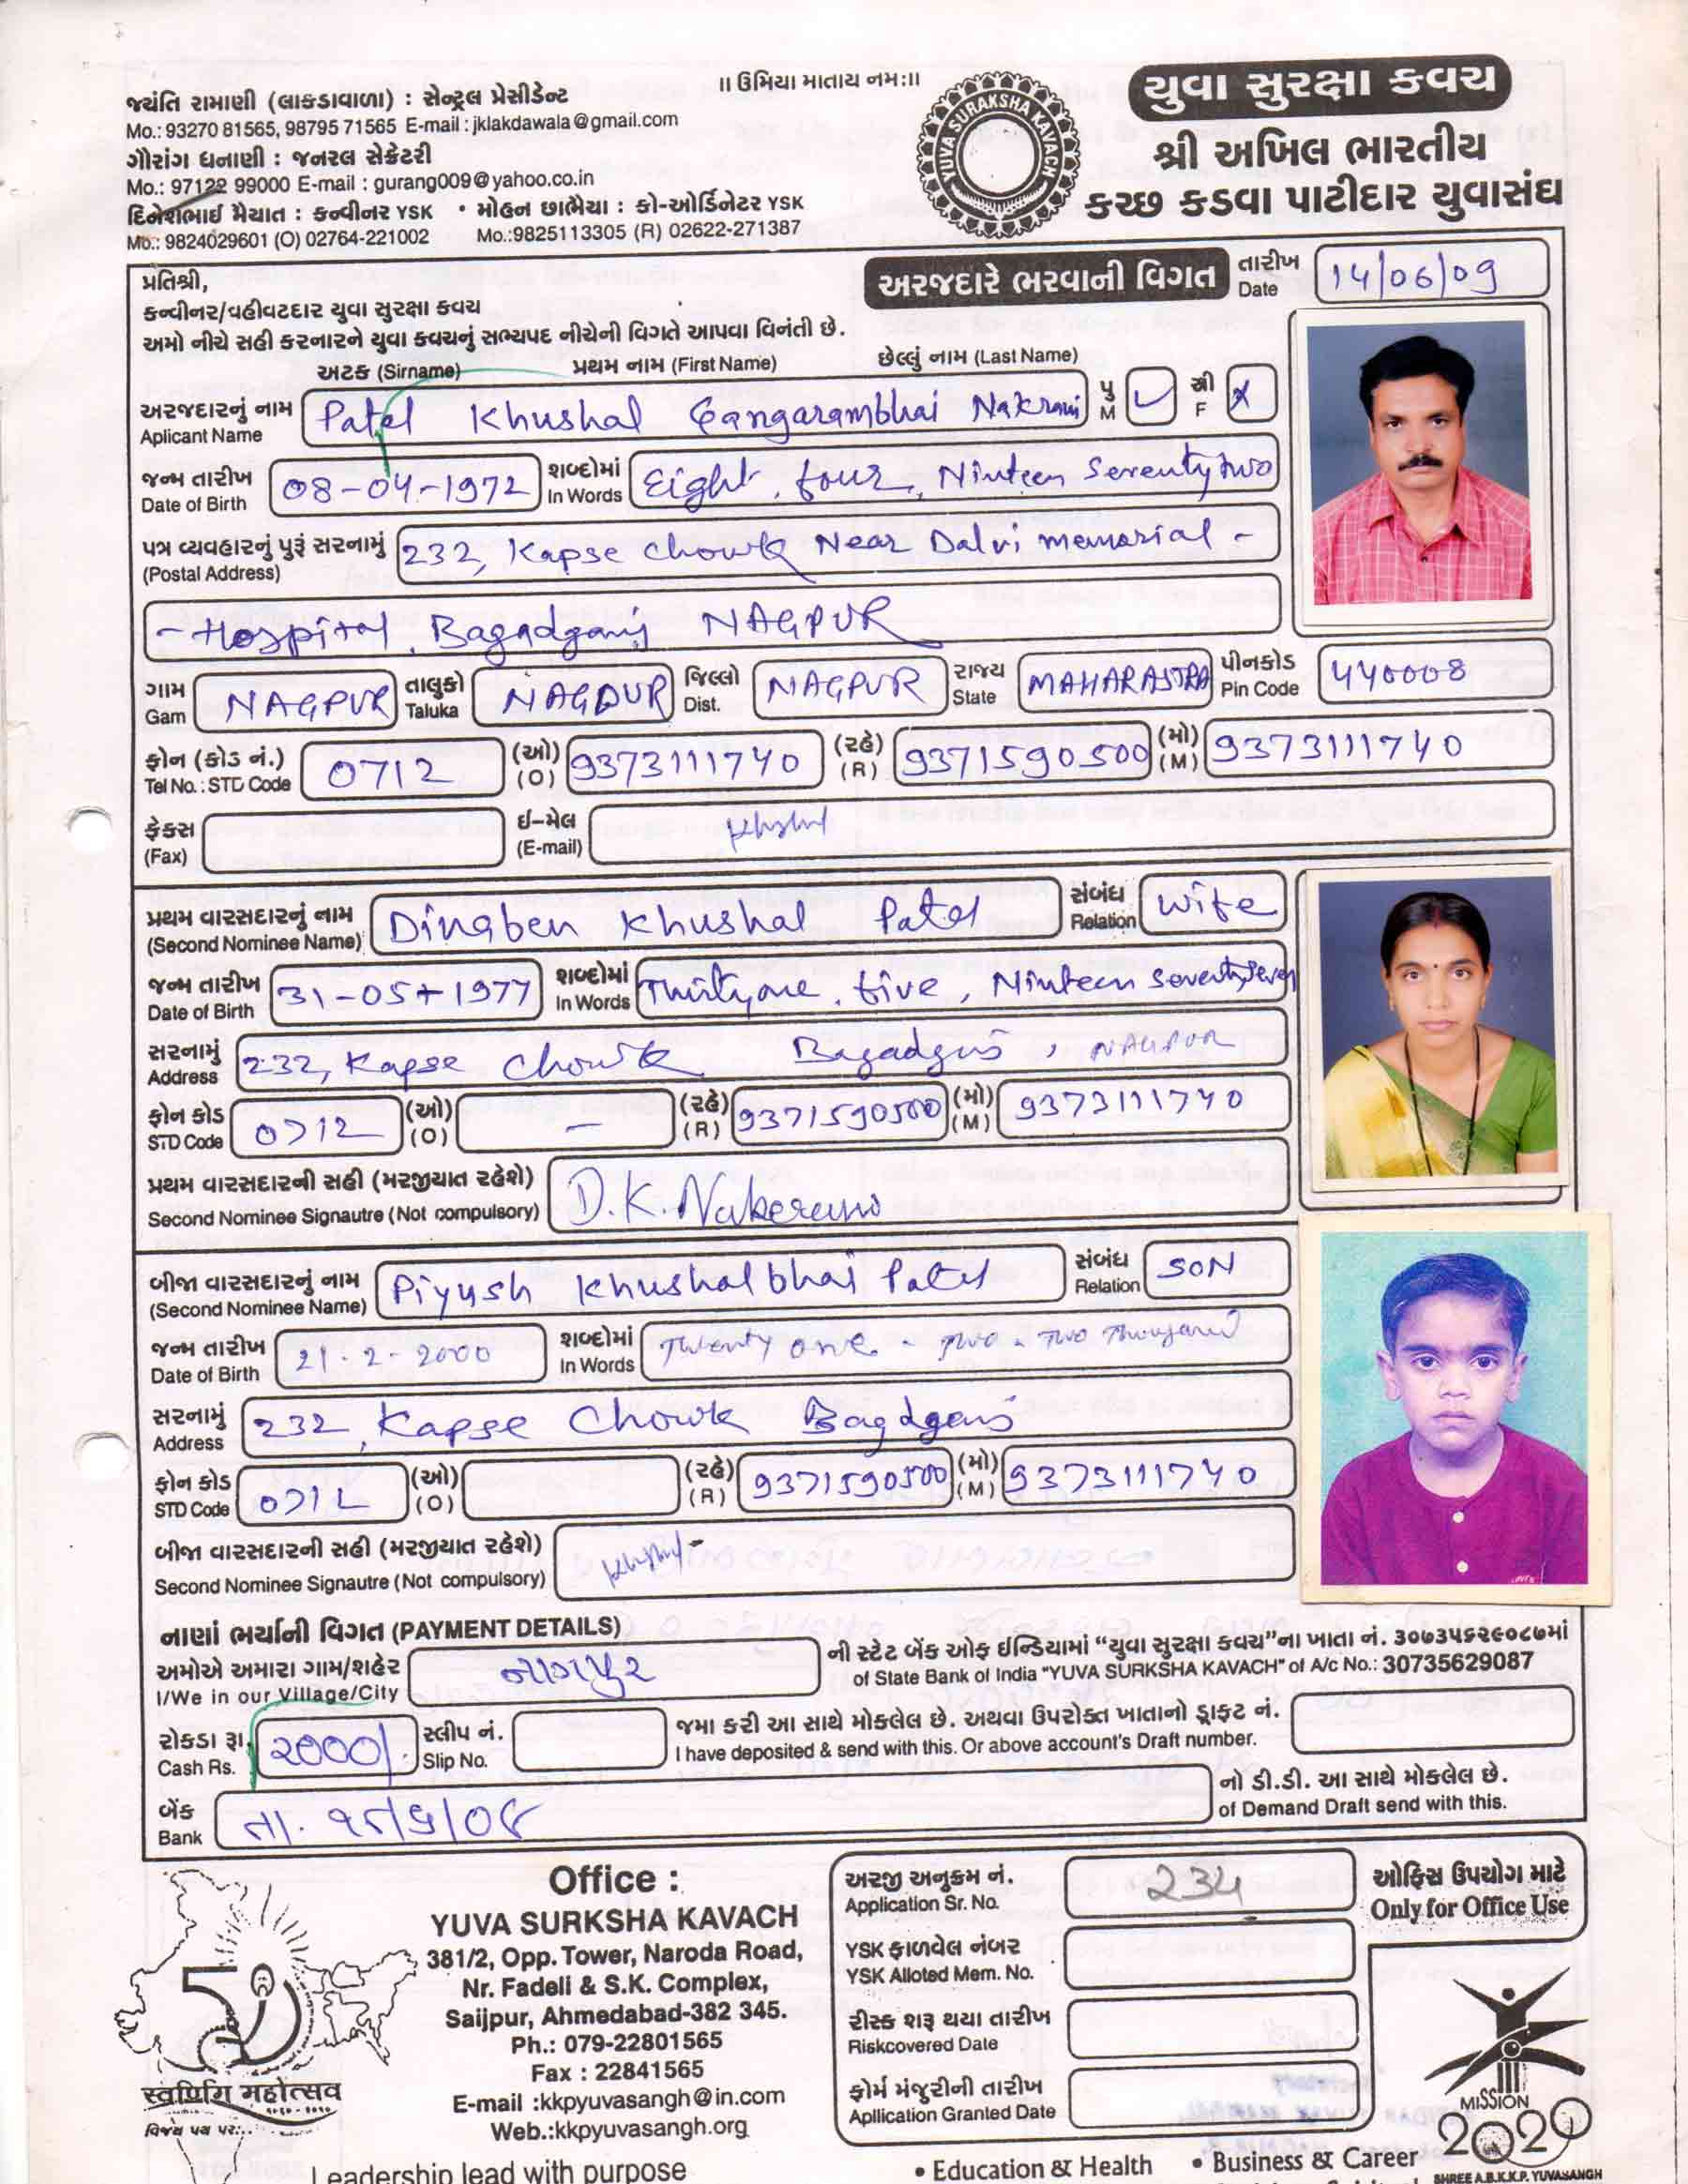 ॥ ઉમિયા માતાય નમઃ॥
જયંતિ રામાણી (લાકડાવાળા) : સેન્ટ્રલ પ્રેસીડેન્ટ
Mo.: 93270 81565, 98795 71565 E-mail : jklakdawala@gmail.com
ગૌરાંગ ધનાણી : જનરલ સેક્રેટરી
Mo.: 97122 99000 E-mail : gurang009@yahoo.co.in
દિનેશભાઈ મૈયાત : કન્વીનર YSK • મોહન છાભૈયા : કો-ઓર્ડિનેટર YSK
Mo.: 9824029601 (O) 02764-221002 Mo.:9825113305 (R) 02622-271387
YUVA SURAKSHA KAVACH
યુવા સુરક્ષા કવચ
શ્રી અખિલ ભારતીય
કચ્છ કડવા પાટીદાર યુવાસંઘ
પ્રતિશ્રી,
કન્વીનર/વહીવટદાર યુવા સુરક્ષા કવચ
અમો નીચે સહી કરનારને યુવા કવચનું સભ્યપદ નીચેની વિગતે આપવા વિનંતી છે.
અરજદારે ભરવાની વિગત તારીખ Date 14/06/09
અટક (Sirname) પ્રથમ નામ (First Name) છેલ્લું નામ (Last Name)
અરજદારનું નામ Aplicant Name Patel Khushal Gangarambhai Nakrani પુ M ✓ સ્ત્રી F X
જન્મ તારીખ Date of Birth 08-04-1972 શબ્દોમાં In Words Eight, four, Ninteen Seventy two
પત્ર વ્યવહારનું પુરૂં સરનામું (Postal Address) 232, Kapse chowk Near Dalvi memorial -
- Hospital, Bagadganj NAGPUR
ગામ Gam NAGPUR તાલુકો Taluka NAGPUR જિલ્લો Dist. NAGPUR રાજ્ય State MAHARASTRA પીનકોડ Pin Code 440008
ફોન (કોડ નં.) Tel No.: STD Code 0712 (ઓ) (O) 9373111740 (રહે) (R) 9371590500 (મો) (M) 9373111740
ફેક્સ (Fax) ઈ-મેલ (E-mail)
પ્રથમ વારસદારનું નામ (Second Nominee Name) Dinaben Khushal Patel સંબંધ Relation Wife
જન્મ તારીખ Date of Birth 31-05-1977 શબ્દોમાં In Words Thirtyone, five, Ninteen seventyseven
સરનામું Address 232, Kapse Chowk Bagadganj, NAGPUR
ફોન કોડ STD Code 0712 (ઓ) (O) — (રહે) (R) 9371590500 (મો) (M) 9373111740
પ્રથમ વારસદારની સહી (મરજીયાત રહેશે)
Second Nominee Signautre (Not compulsory) D.K.Nakerani
બીજા વારસદારનું નામ (Second Nominee Name) Piyush Khushalbhai Patel સંબંધ Relation SON
જન્મ તારીખ Date of Birth 21-2-2000 શબ્દોમાં In Words Twenty one - Two - Two Thousand
સરનામું Address 232, Kapse Chowk Bagdganj
ફોન કોડ STD Code 0712 (ઓ) (O) (રહે) (R) 9371590500 (મો) (M) 9373111740
બીજા વારસદારની સહી (મરજીયાત રહેશે)
Second Nominee Signautre (Not compulsory)
નાણાં ભર્યાની વિગત (PAYMENT DETAILS)
અમોએ અમારા ગામ/શહેર નાગપુર ની સ્ટેટ બેંક ઓફ ઈન્ડિયામાં "યુવા સુરક્ષા કવચ"ના ખાતા નં. ૩૦૭૩૫૬૨૯૦૮૭માં
I/We in our Village/City of State Bank of India "YUVA SURKSHA KAVACH" of A/c No.: 30735629087
રોકડા રૂા. Cash Rs. ૨૦૦૦/- સ્લીપ નં. Slip No. જમા કરી આ સાથે મોકલેલ છે. અથવા ઉપરોક્ત ખાતાનો ડ્રાફ્ટ નં.
I have deposited & send with this. Or above account's Draft number.
બેંક Bank તા. ૧૮/૬/૦૯ નો ડી.ડી. આ સાથે મોકલેલ છે.
of Demand Draft send with this.
Office :
YUVA SURKSHA KAVACH
381/2, Opp. Tower, Naroda Road,
Nr. Fadeli & S.K. Complex,
Saijpur, Ahmedabad-382 345.
Ph.: 079-22801565
Fax : 22841565
E-mail :kkpyuvasangh@in.com
Web.:kkpyuvasangh.org
અરજી અનુક્રમ નં. Application Sr. No. 234
ઓફિસ ઉપયોગ માટે
Only for Office Use
YSK ફાળવેલ નંબર
YSK Alloted Mem. No.
રીસ્ક શરૂ થયા તારીખ
Riskcovered Date
ફોર્મ મંજુરીની તારીખ
Apllication Granted Date
50
स्वर्णिम महोत्सव
MISSION
2020
SHREE A.B.K.K.P. YUVASANGH
Leadership lead with purpose • Education & Health • Business & Career